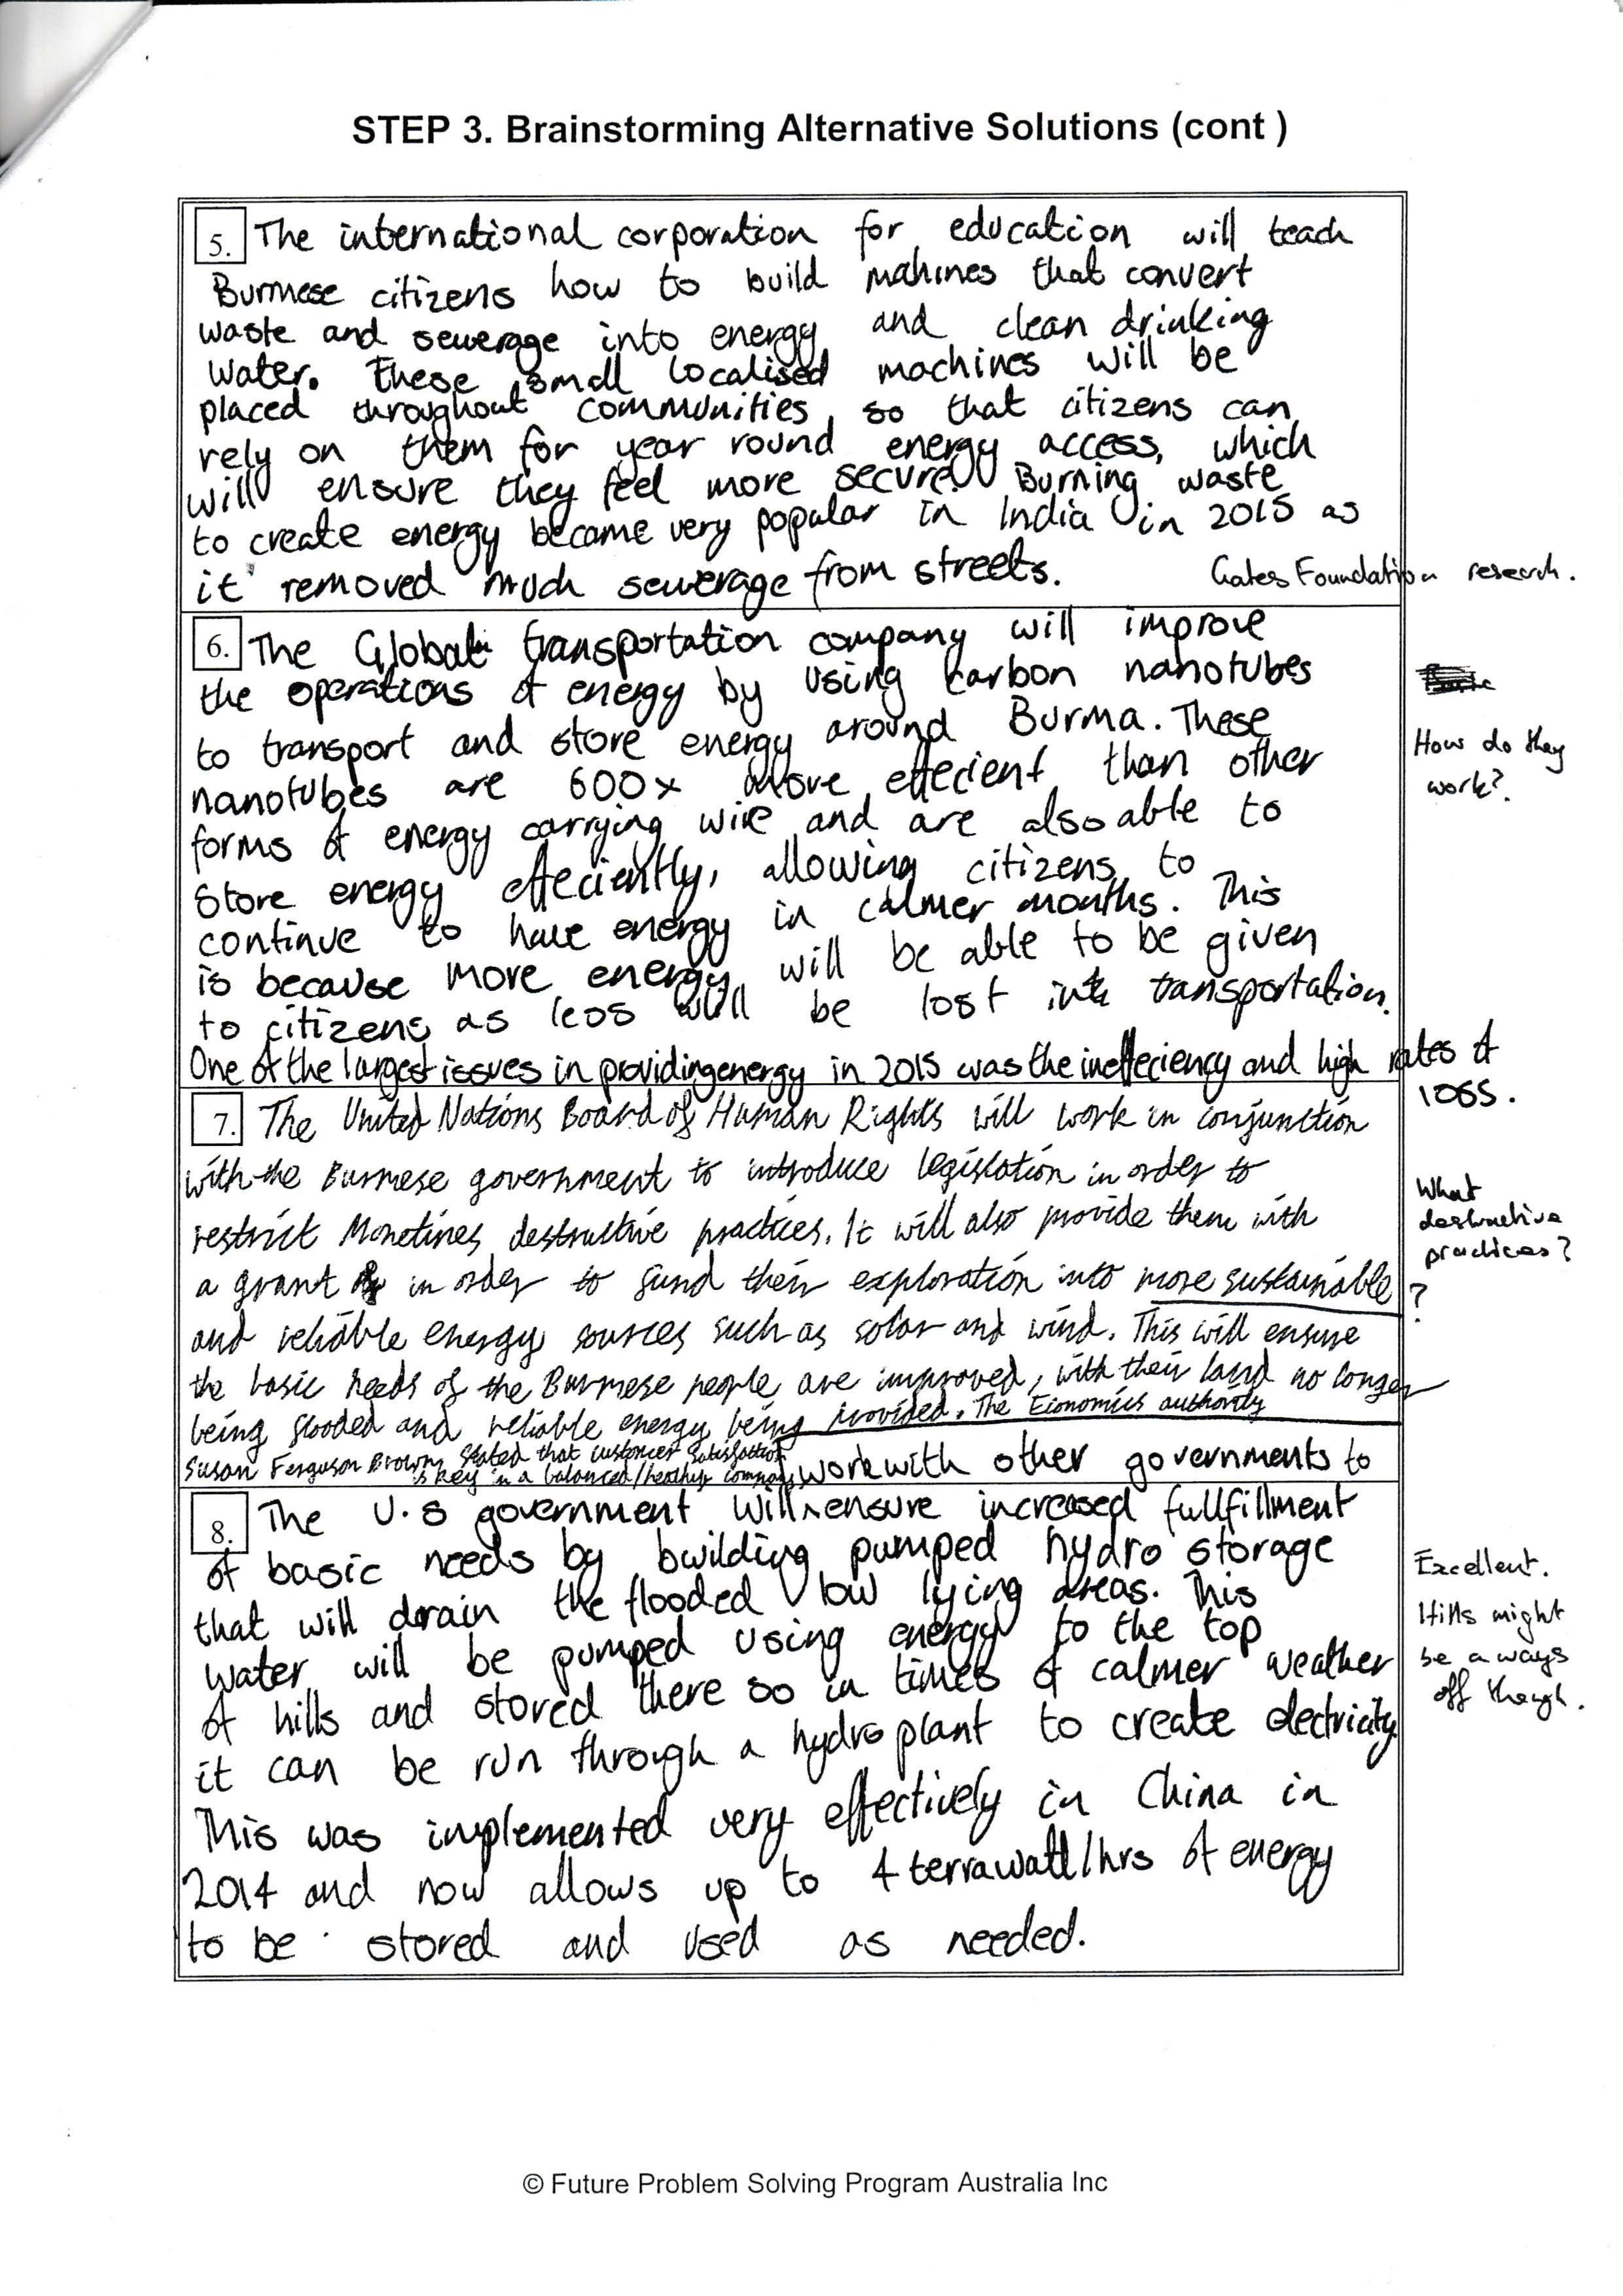 STEP 3. Brainstorming Alternative Solutions (cont )
5. The international corporation for education will teach
Burmese citizens how to build mahines that convert
waste and sewerage into energy and clean drinking
water. These small localised machines will be
placed throughout communities, so that citizens can
rely on them for year round energy access, which
will ensure they feel more secure. Burning waste
to create energy became very popular in India in 2015 as
it removed much sewerage from streets.
Gates Foundation research.
6. The Global transportation company will improve
the operations of energy by using karbon nanotubes
to transport and store energy around Burma. These
nanotubes are 600x more effecient than other
forms of energy carrying wire and are also able to
store energy effeciently, allowing citizens to
continue to have energy in calmer months. This
is because more energy will be able to be given
to citizens as less will be lost in transportation.
One of the largest issues in providing energy in 2015 was the ineffeciency and high rates of
loss.
How do they
work?
7. The United Nations Board of Human Rights will work in conjunction
with the Burmese government to introduce legislation in order to
restrict Monetines destructive practices. It will also provide them with
a grant in order to fund their exploration into more sustainable
and reliable energy sources such as solar and wind. This will ensure
the basic needs of the Burmese people are improved, with their land no longer
being flooded and reliable energy being provided. The Economics authority
Susan Ferguson Brown, stated that customer satisfaction
is key in a balanced/healthy company
What
destructive
practices?
?
work with other governments to
8. The U.S government will ensure increased fullfillment
of basic needs by building pumped hydro storage
that will drain the flooded low lying areas. This
water will be pumped using energy to the top
of hills and stored there so in times of calmer weather
it can be run through a hydro plant to create electricity.
This was implemented very effectively in China in
2014 and now allows up to 4 terrawatt/hrs of energy
to be stored and used as needed.
Excellent.
Hills might
be a ways
off though.
© Future Problem Solving Program Australia Inc